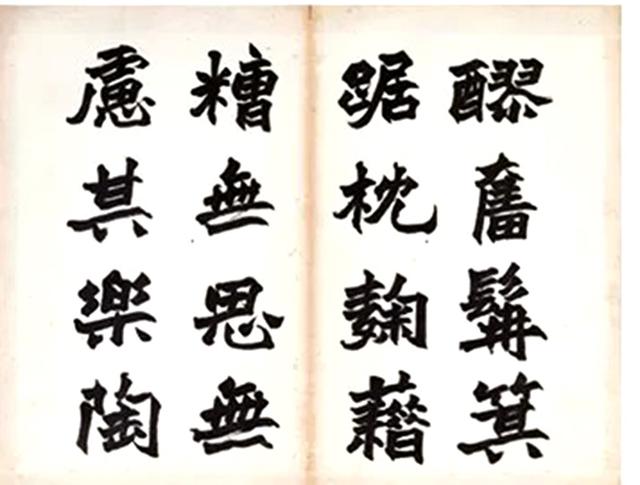 醪奮髯箕
踞枕麴藉
糟無思無
慮其樂陶